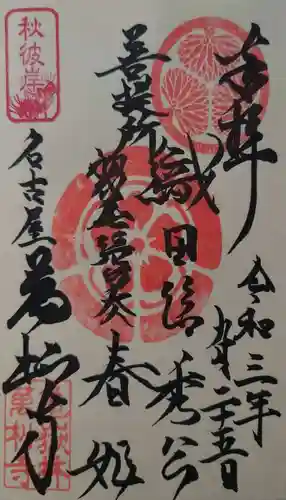 奉拝
令和三年
九月二十五日
織田信秀公
菩提所
春姫
秋彼岸
名古屋
萬松寺
萬松寺